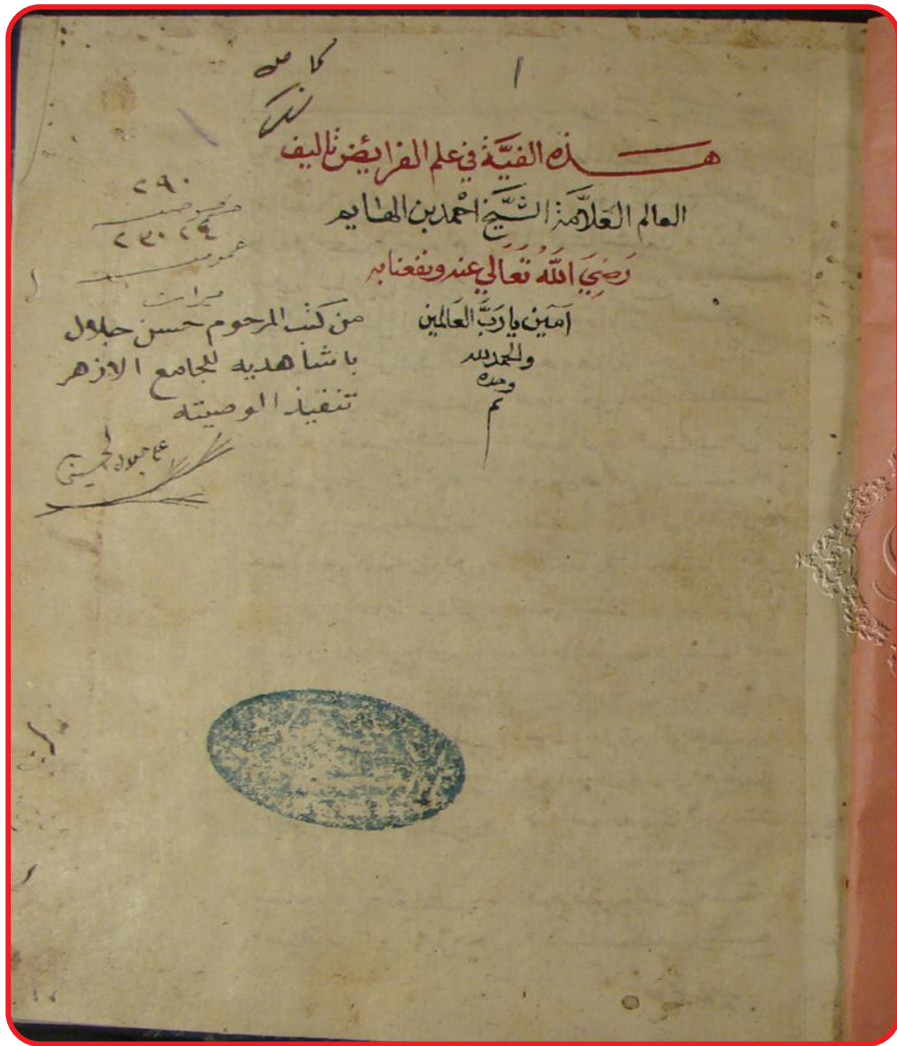 كامل
١
هذه الفيَّة في علم الفرايض تاليف
العالم العَلاَّمة الشَّيخ احْمد بن الهايم
رَضِيَ اللَّهُ تَعَالَي عنه ونفعنا به
امَين يا ربَّ العَالمين
والحمد لله
وحده
تم
٢٩٠
خصوصية
٢٣٠٢٤
عمومية
ميراث
من كتب المرحوم حسن جلال
باشا هديه للجامع الازهر
تنفيذا لوصيته
علي جلال الحسيني